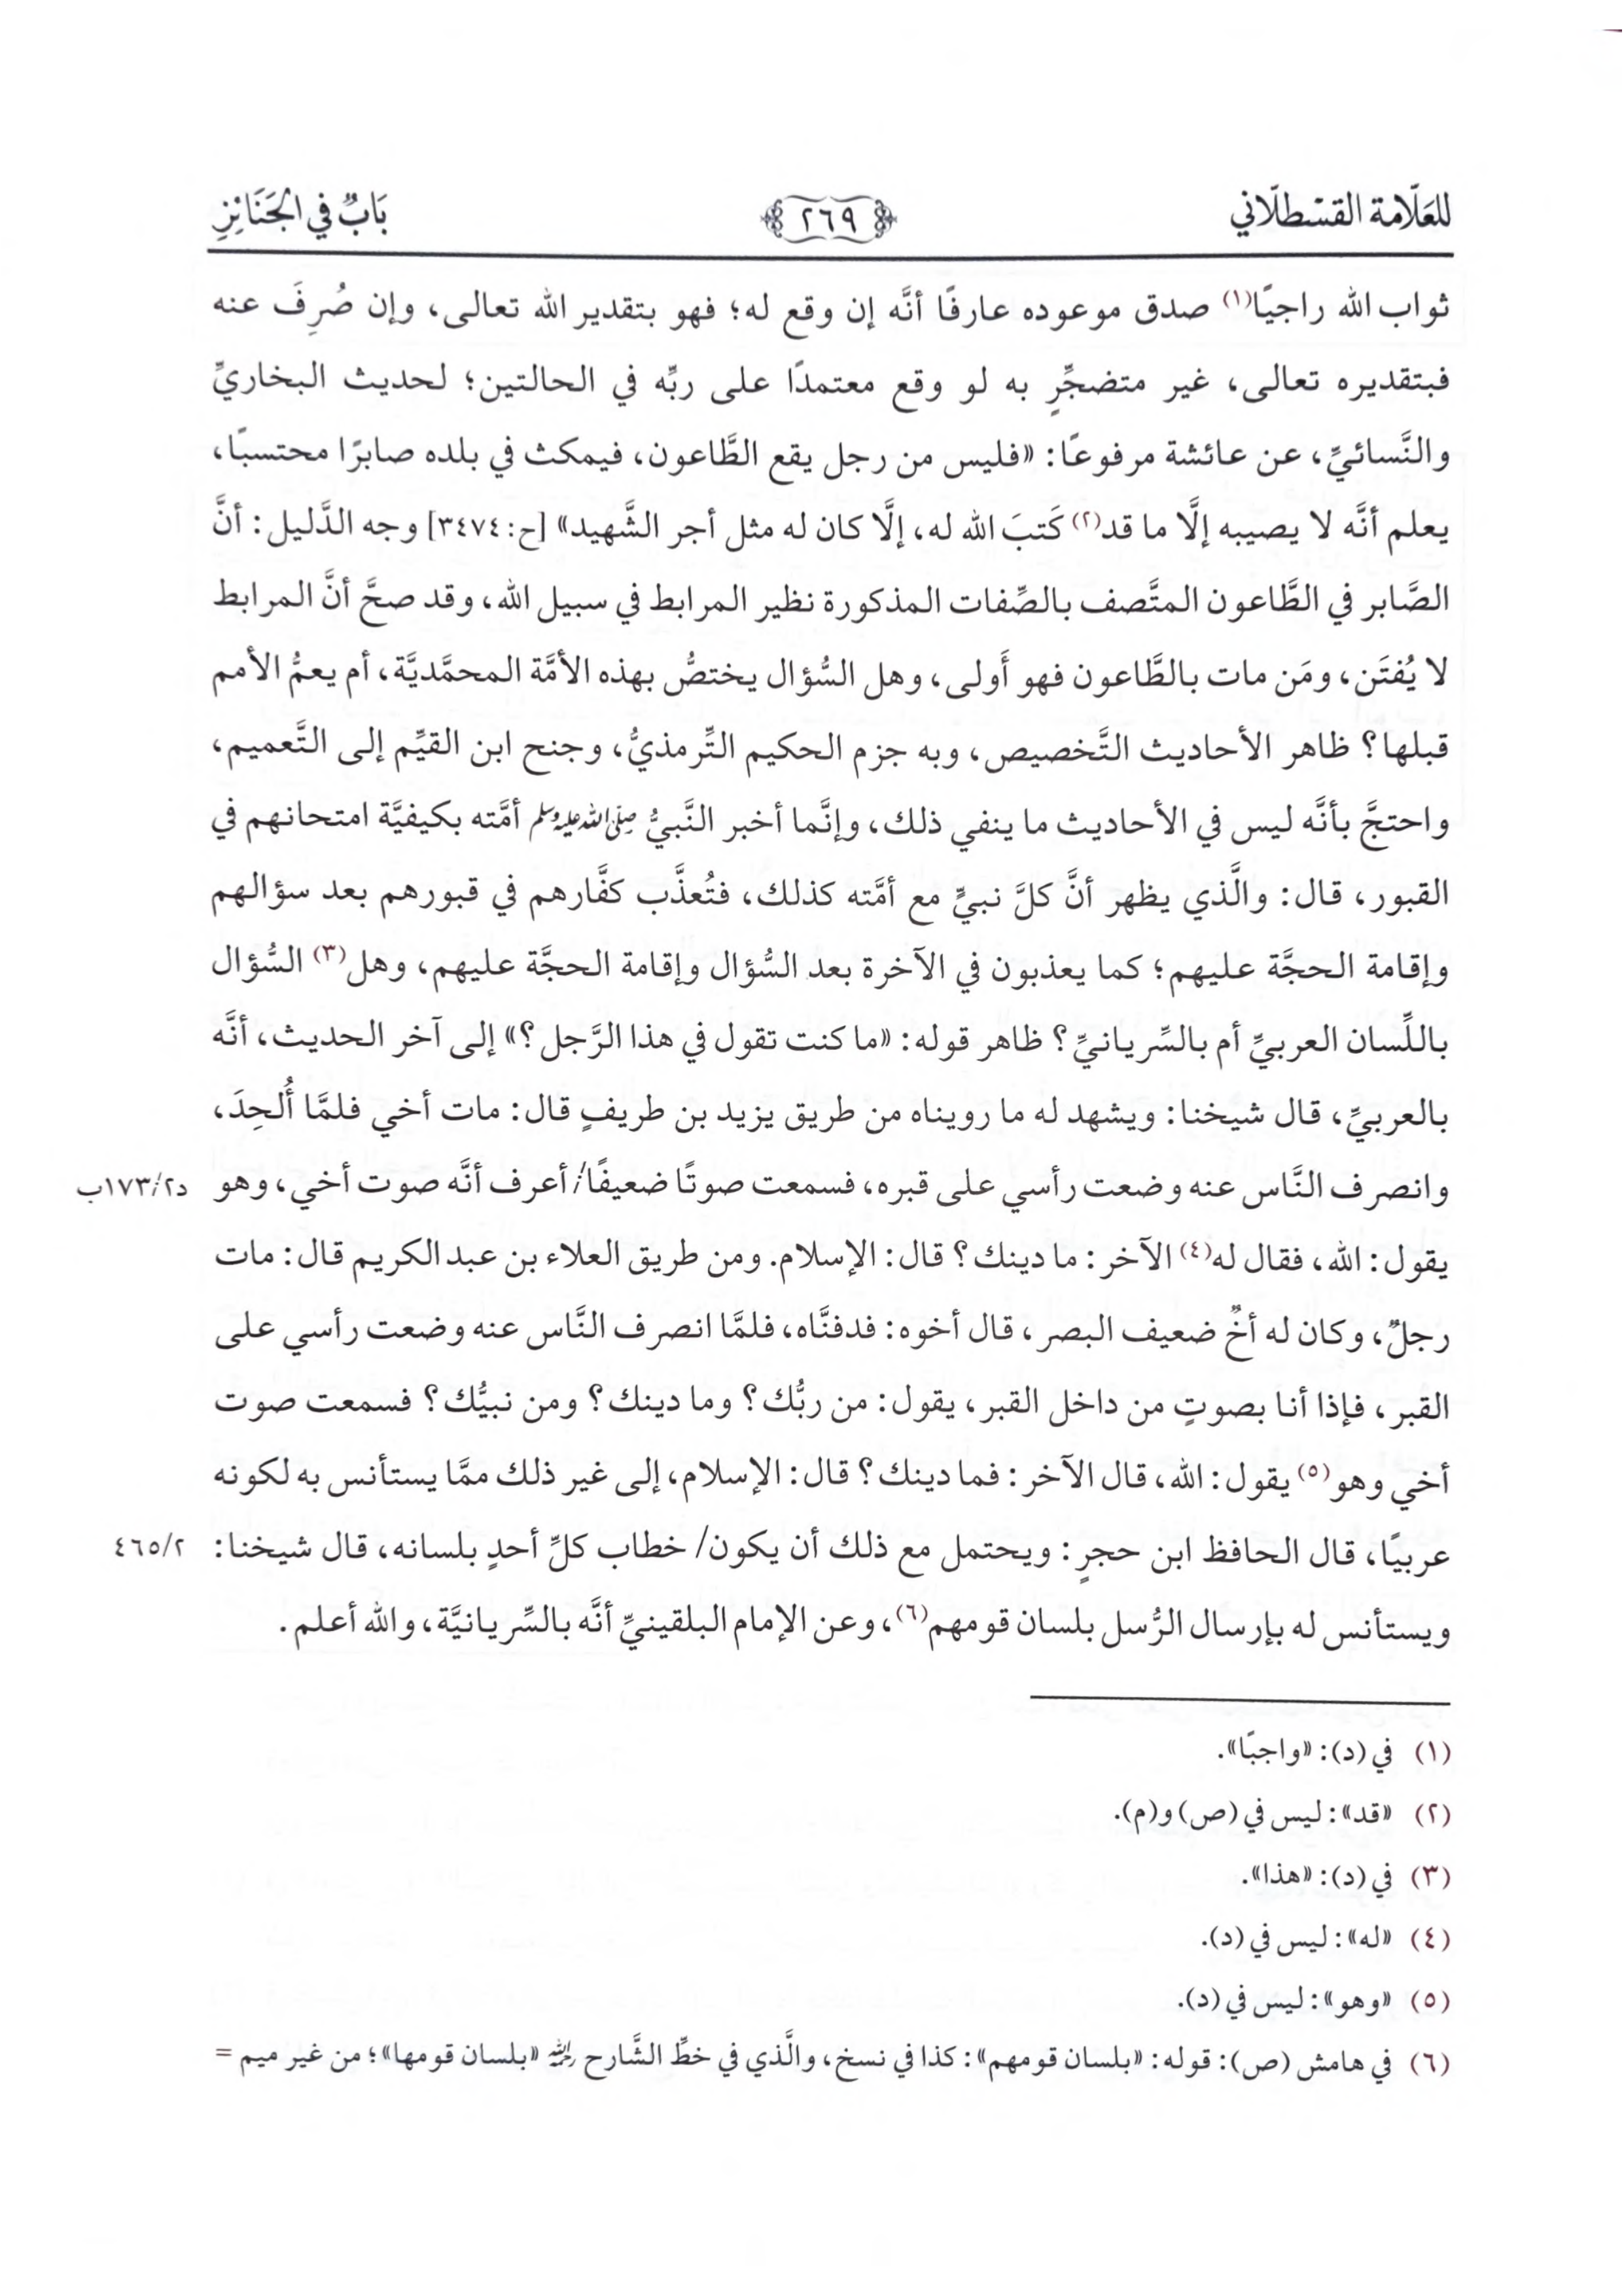 للعلّامة القسطلّاني ٢٦٩ بَابٌ في الجَنَائِزِ
ثواب الله راجيًا(١) صدق موعوده عارفًا أنَّه إن وقع له؛ فهو بتقدير الله تعالى، وإن صُرِفَ عنه
فبتقديره تعالى، غير متضجِّرٍ به لو وقع معتمدًا على ربِّه في الحالتين؛ لحديث البخاريِّ
والنَّسائيِّ، عن عائشة مرفوعًا: «فليس من رجل يقع الطَّاعون، فيمكث في بلده صابرًا محتسبًا،
يعلم أنَّه لا يصيبه إلَّا ما قد(٢) كَتبَ الله له، إلَّا كان له مثل أجر الشَّهيد» [ح: ٣٤٧٤] وجه الدَّليل: أنَّ
الصَّابر في الطَّاعون المتَّصف بالصِّفات المذكورة نظير المرابط في سبيل الله، وقد صحَّ أنَّ المرابط
لا يُفتَن، ومَن مات بالطَّاعون فهو أَولى، وهل السُّؤال يختصُّ بهذه الأمَّة المحمَّديَّة، أم يعمُّ الأمم
قبلها؟ ظاهر الأحاديث التَّخصيص، وبه جزم الحكيم التِّرمذيُّ، وجنح ابن القيِّم إلى التَّعميم،
واحتجَّ بأنَّه ليس في الأحاديث ما ينفي ذلك، وإنَّما أخبر النَّبيُّ صلى الله عليه وسلم أمَّته بكيفيَّة امتحانهم في
القبور، قال: والَّذي يظهر أنَّ كلَّ نبيٍّ مع أمَّته كذلك، فتُعذَّب كفَّارهم في قبورهم بعد سؤالهم
وإقامة الحجَّة عليهم؛ كما يعذبون في الآخرة بعد السُّؤال وإقامة الحجَّة عليهم، وهل(٣) السُّؤال
باللِّسان العربيِّ أم بالسِّريانيِّ؟ ظاهر قوله: «ما كنت تقول في هذا الرَّجل؟» إلى آخر الحديث، أنَّه
بالعربيِّ، قال شيخنا: ويشهد له ما رويناه من طريق يزيد بن طريفٍ قال: مات أخي فلمَّا أُلحِدَ،
وانصرف النَّاس عنه وضعت رأسي على قبره، فسمعت صوتًا ضعيفًا/ أعرف أنَّه صوت أخي، وهو د١٧٣/٢ب
يقول: الله، فقال له(٤) الآخر: ما دينك؟ قال: الإسلام. ومن طريق العلاء بن عبد الكريم قال: مات
رجلٌ، وكان له أخٌ ضعيف البصر، قال أخوه: فدفنَّاه، فلمَّا انصرف النَّاس عنه وضعت رأسي على
القبر، فإذا أنا بصوتٍ من داخل القبر، يقول: من ربُّك؟ وما دينك؟ ومن نبيُّك؟ فسمعت صوت
أخي وهو(٥) يقول: الله، قال الآخر: فما دينك؟ قال: الإسلام، إلى غير ذلك ممَّا يستأنس به لكونه
عربيًا، قال الحافظ ابن حجرٍ: ويحتمل مع ذلك أن يكون/ خطاب كلِّ أحدٍ بلسانه، قال شيخنا: ٤٦٥/٢
ويستأنس له بإرسال الرُّسل بلسان قومهم(٦)، وعن الإمام البلقينيِّ أنَّه بالسِّريانيَّة، والله أعلم.
(١) في (د): «واجبًا».
(٢) «قد»: ليس في (ص) و(م).
(٣) في (د): «هذا».
(٤) «له»: ليس في (د).
(٥) «وهو»: ليس في (د).
(٦) في هامش (ص): قوله: «بلسان قومهم»: كذا في نسخ، والَّذي في خطِّ الشَّارح رحمه الله «بلسان قومها»؛ من غير ميم =